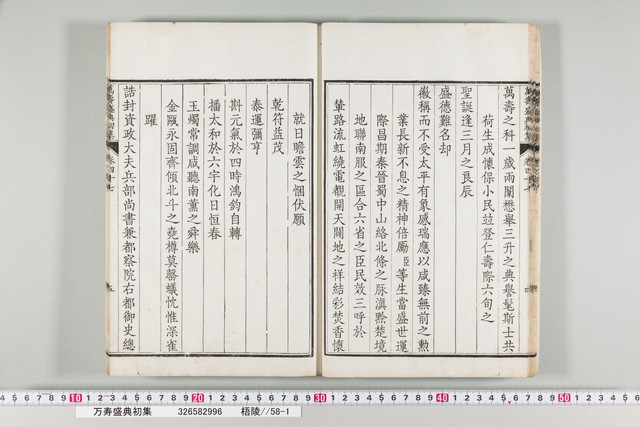 萬壽之科一歲兩闈懋舉三升之典譽髦斯士共
荷生成懷保小民竝登仁壽際六旬之
聖誕逢三月之良辰
盛德難名却
徽稱而不受太平有象感瑞應以咸臻無前之勲
業長新不息之精神倍勵臣等生當盛世運
際昌期秦晉蜀中山絡北條之脉滇黔楚境
地聯南服之區合六省之臣民效三呼於
輦路流虹繞電覩開天闢地之祥結彩焚香懷
就日瞻雲之悃伏願
乾符益茂
泰運彌亨
斟元氣於四時鴻鈞自轉
播太和於六宇化日恒春
玉燭常調咸聽南薰之舜樂
金甌永固齊傾北斗之堯樽莫罄蟻忱惟深雀
躍
誥封資政大夫兵部尚書兼都察院右都御史總
万寿盛典初集 326582996 梧陵//58-1